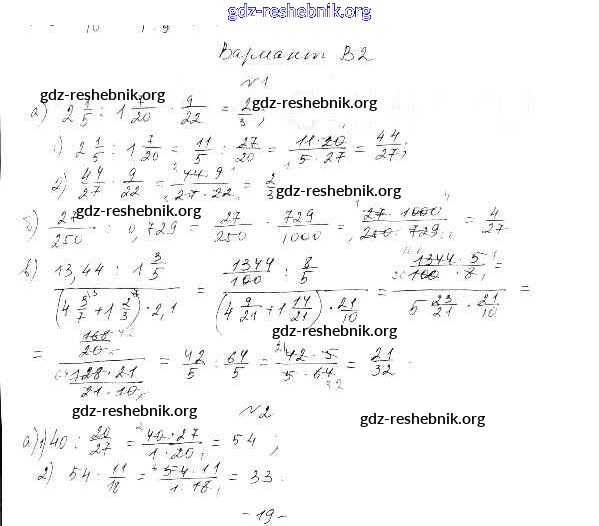 gdz-reshebnik.org
Вариант В2
№1
gdz-reshebnik.org gdz-reshebnik.org
а) 2 1/5 : 1 7/20 · 9/22 = 2/3;
1) 2 1/5 : 1 7/20 = 11/5 : 27/20 = 11·20/5·27 = 44/27;
2) 44/27 · 9/22 = 44·9/27·22 = 2/3
gdz-reshebnik.org
gdz-reshebnik.org
б) 27/250 : 0,729 = 27/250 : 729/1000 = 27·1000/250·729 = 4/27
в) 13,44 : 1 3/5 / (4 3/7 + 1 2/3) · 2,1 = 1344/100 : 8/5 / (4 9/21 + 1 14/21) · 21/10 = 1344·5/100·8 / 5 23/21 · 21/10 =
gdz-reshebnik.org
= 168/20 / 128·21/21·10 = 42/5 : 64/5 = 42·5/5·64 = 21/32.
gdz-reshebnik.org
№2
gdz-reshebnik.org
а) 1) 40 : 20/27 = 40·27/1·20 = 54;
2) 54 · 11/18 = 54·11/1·18 = 33.
- 19 -